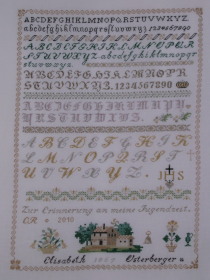 ABCDEFGHIKLMNOPQRSTUVWXYZ
abcdefghiklmnopqrstuvwxyz 1234567890
ABCDEFGHIKLMNOPQR
STUVWXYZ abcdefghiklmnopqr
stuvwxyz
ABCDEFGHIKLMNOPQRS
TUVWXYZ.1234567890
ABCDEFGHIKLMNO
PQRSTUVWXYZ
ABCDEFG HIK
LMNOPQRST
UVWXYZ. JHS
Zur Erinnerung an meine Jugendzeit.
2010
Elisabeth Osterberger